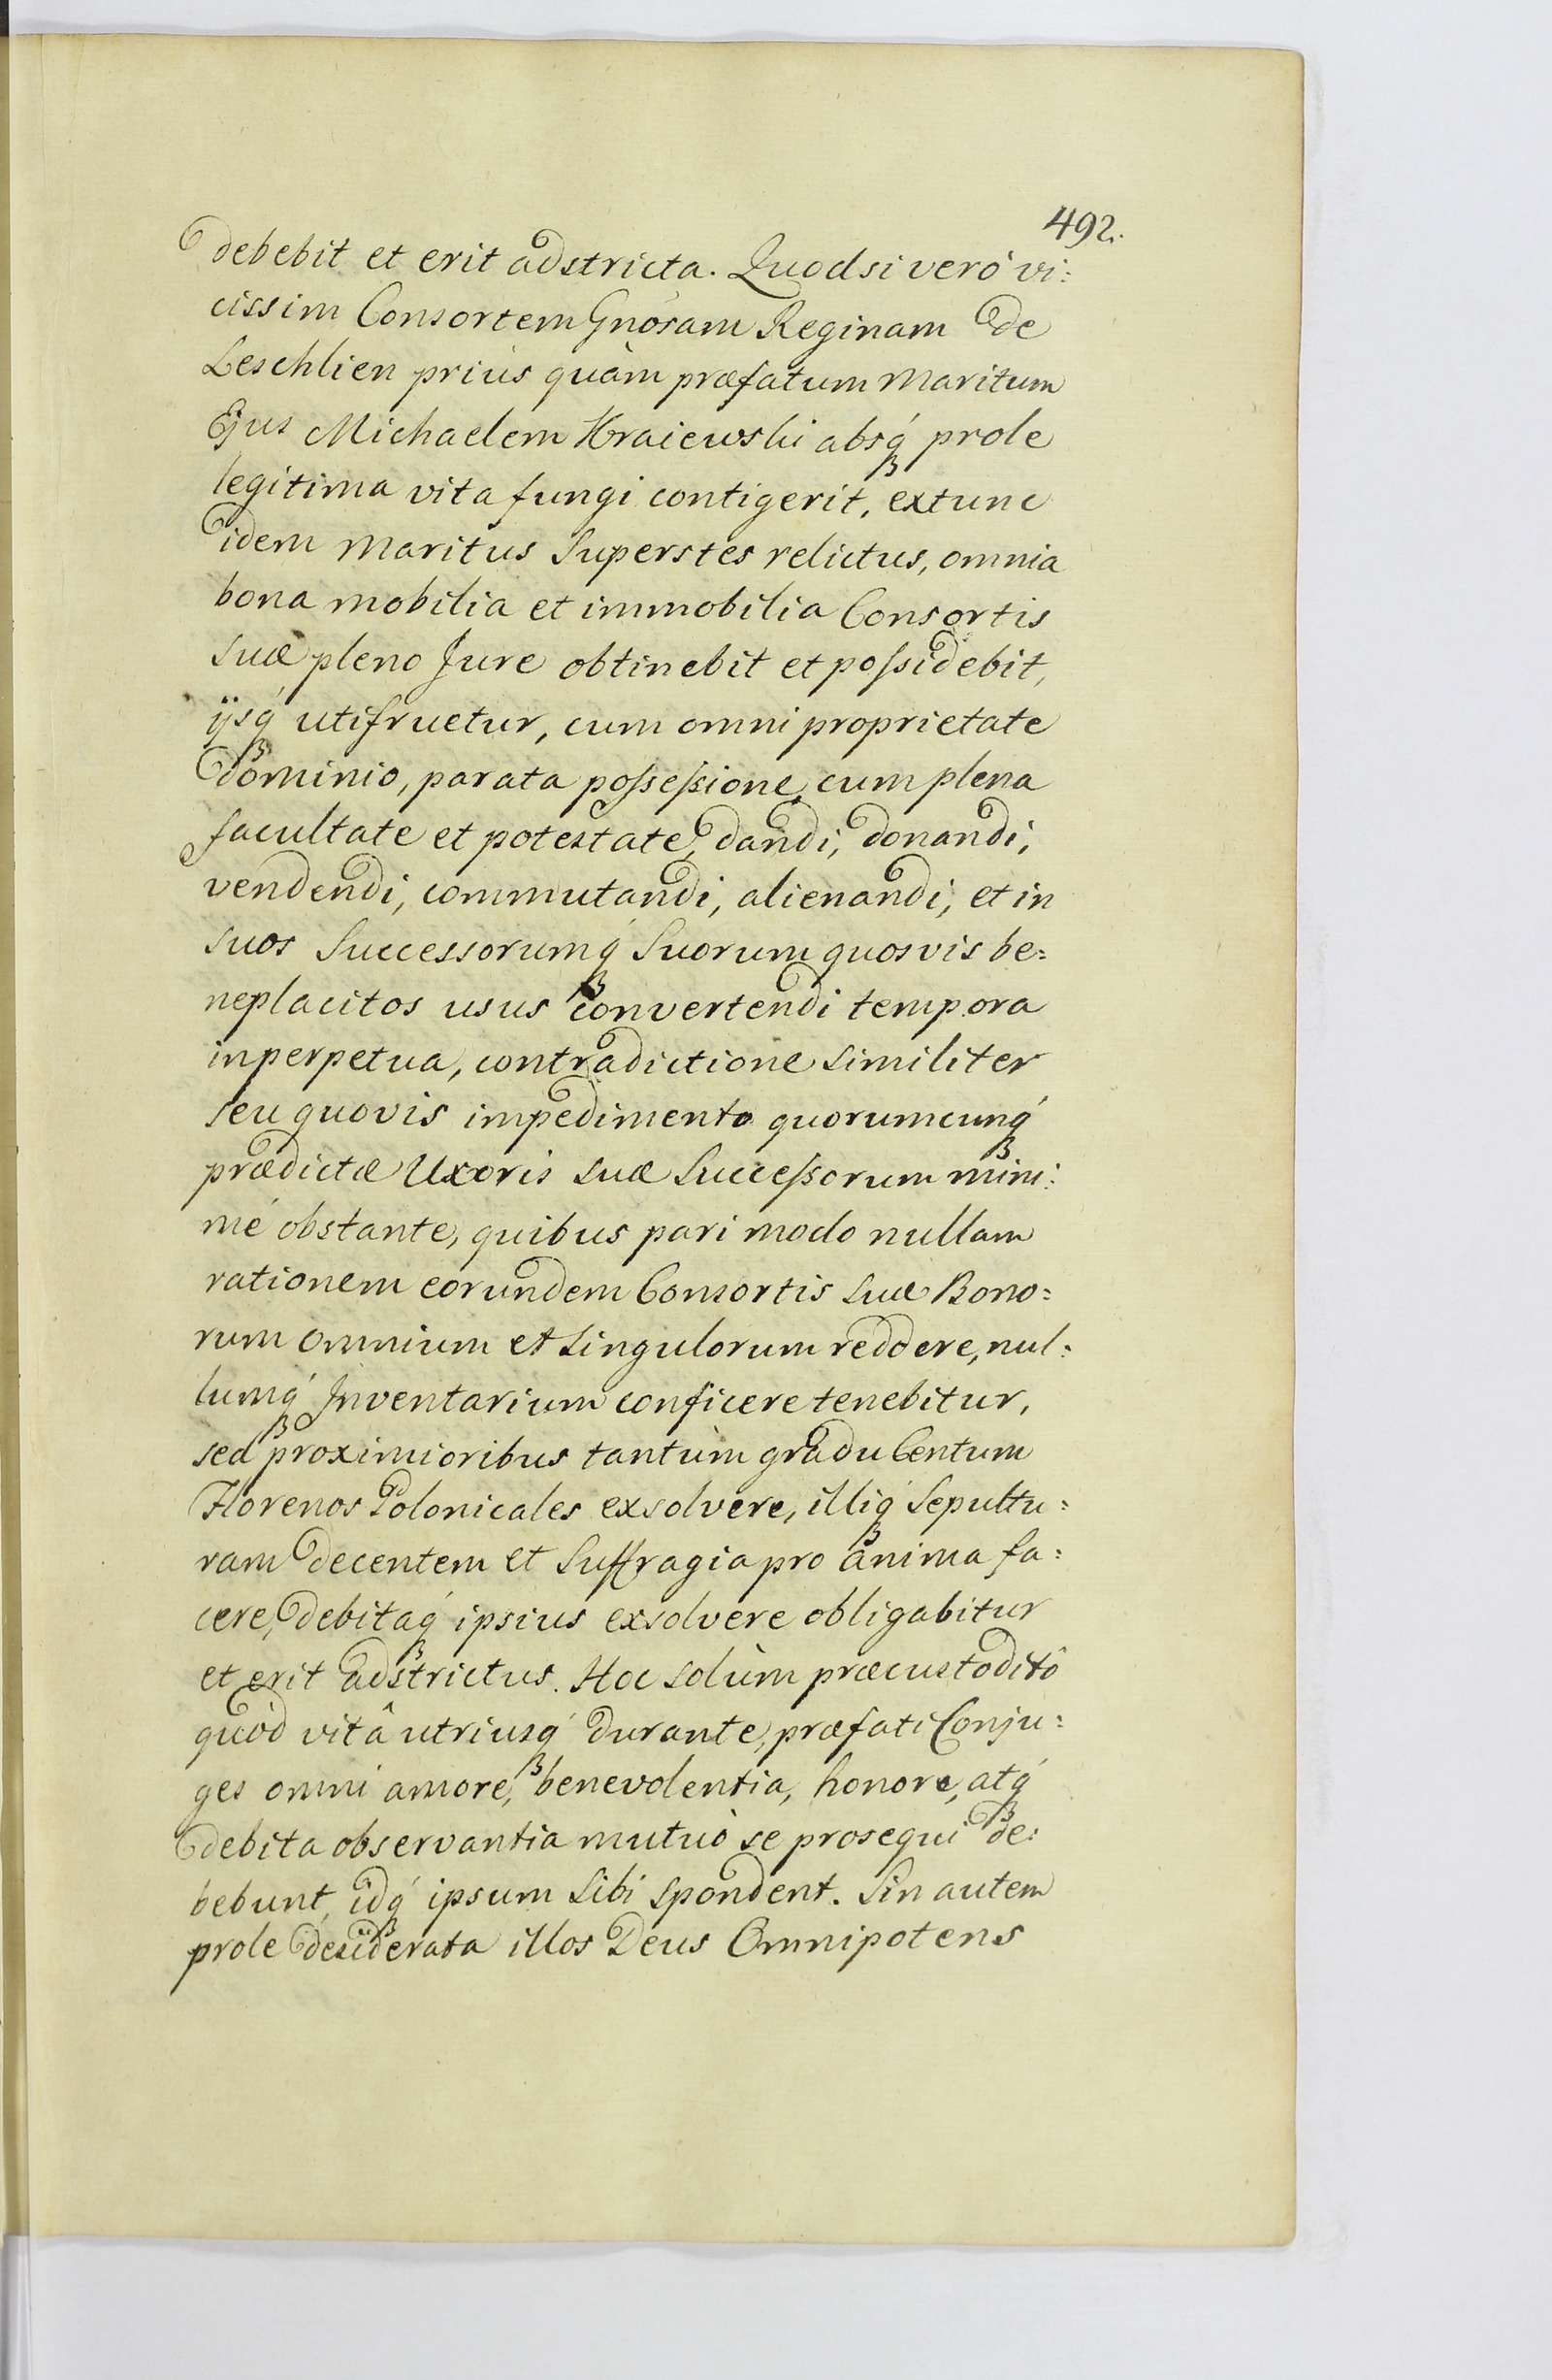 492.
debebit et erit adstricta. Quodsi veró vi:
cissim Consortem Gnosam Reginam de
Leschlien priùs quàm præfatum Maritum
Ejus Michaelem Kraiewski absq́ prole
legitima vita fungi contigerit, extunc
idem Maritus Superstes relictus, omnia
bona mobilia et immobilia Consortis
suæ pleno Jure obtinebit et poſsidebit,
ÿsq́ utifruetur, cum omni proprietate
dominio, parata poſseſsione, cum plena
facultate et potestate, dandi, donandi,
vendendi, commutandi, alienandi, et in
suos Successorumq́ Suorum quosvis be=
neplacitos usus convertendi tempora
inperpetua, contradictione similiter
seu quovis impedimento quorumcunq́
prædictæ Uxoris suæ Succeſsorum mini:
mé obstante, quibus pari modo nullam
rationem eorundem Consortis suæ Bono=
rum omnium et singulorum reddere, nul=
lumq́ Inventarium conficere tenebitur,
sed proximioribus tantùm gradu Centum
Florenos Polonicales exsolvere, illiq́ Sepultu=
ram decentem et Suffragia pro anima fa=
cere, debitaq́ ipsius exsolvere obligabitur
et erit adstrictus. Hoc solùm præcustoditô
quòd vitâ utriusq́ durante, præfati Conju=
ges omni amore, benevolentia, honore, atq́
debita observantia mutuò se prosequi de:
bebunt, idq́ ipsum sibi spondent. Sin autem
prole desiderata illos Deus Omnipotens